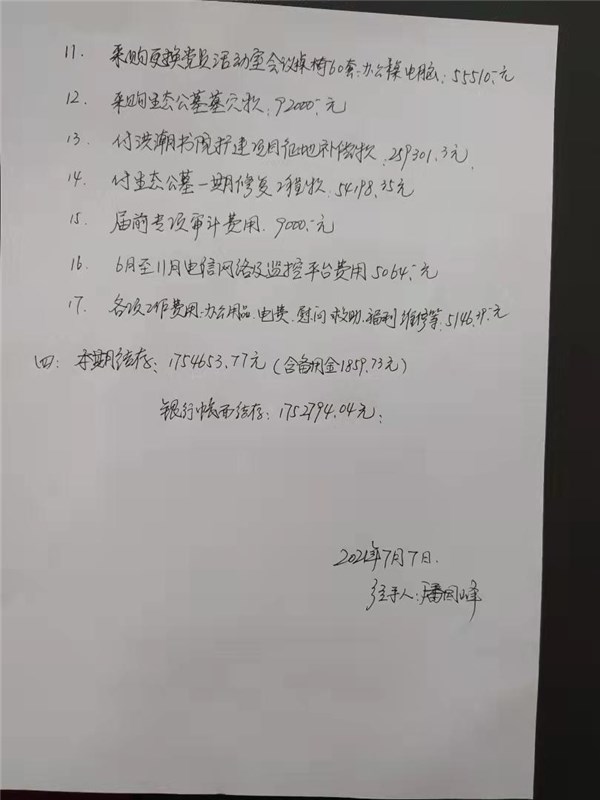 11. 采购更换党员活动室会议桌椅60套.办公桌电脑: 55510.-元
12. 采购生态公墓墓穴款: 92000.-元
13. 付洪潮书院扩建项目征地补偿款. 259301.3元.
14. 付生态公墓一期修复工程款. 54198.35元
15. 届前专项审计费用. 9000.-元
16. 6月至11月电信网络及监控平台费用5064.-元
17. 各项工作费用.办公用品.电费.慰问救助.福利维修等.元
四: 本期结存: 1754653.77元(含备用金1859.73元)
银行帐面结存: 1752794.04元;
2021年7月7日.
经手人:潘国峰